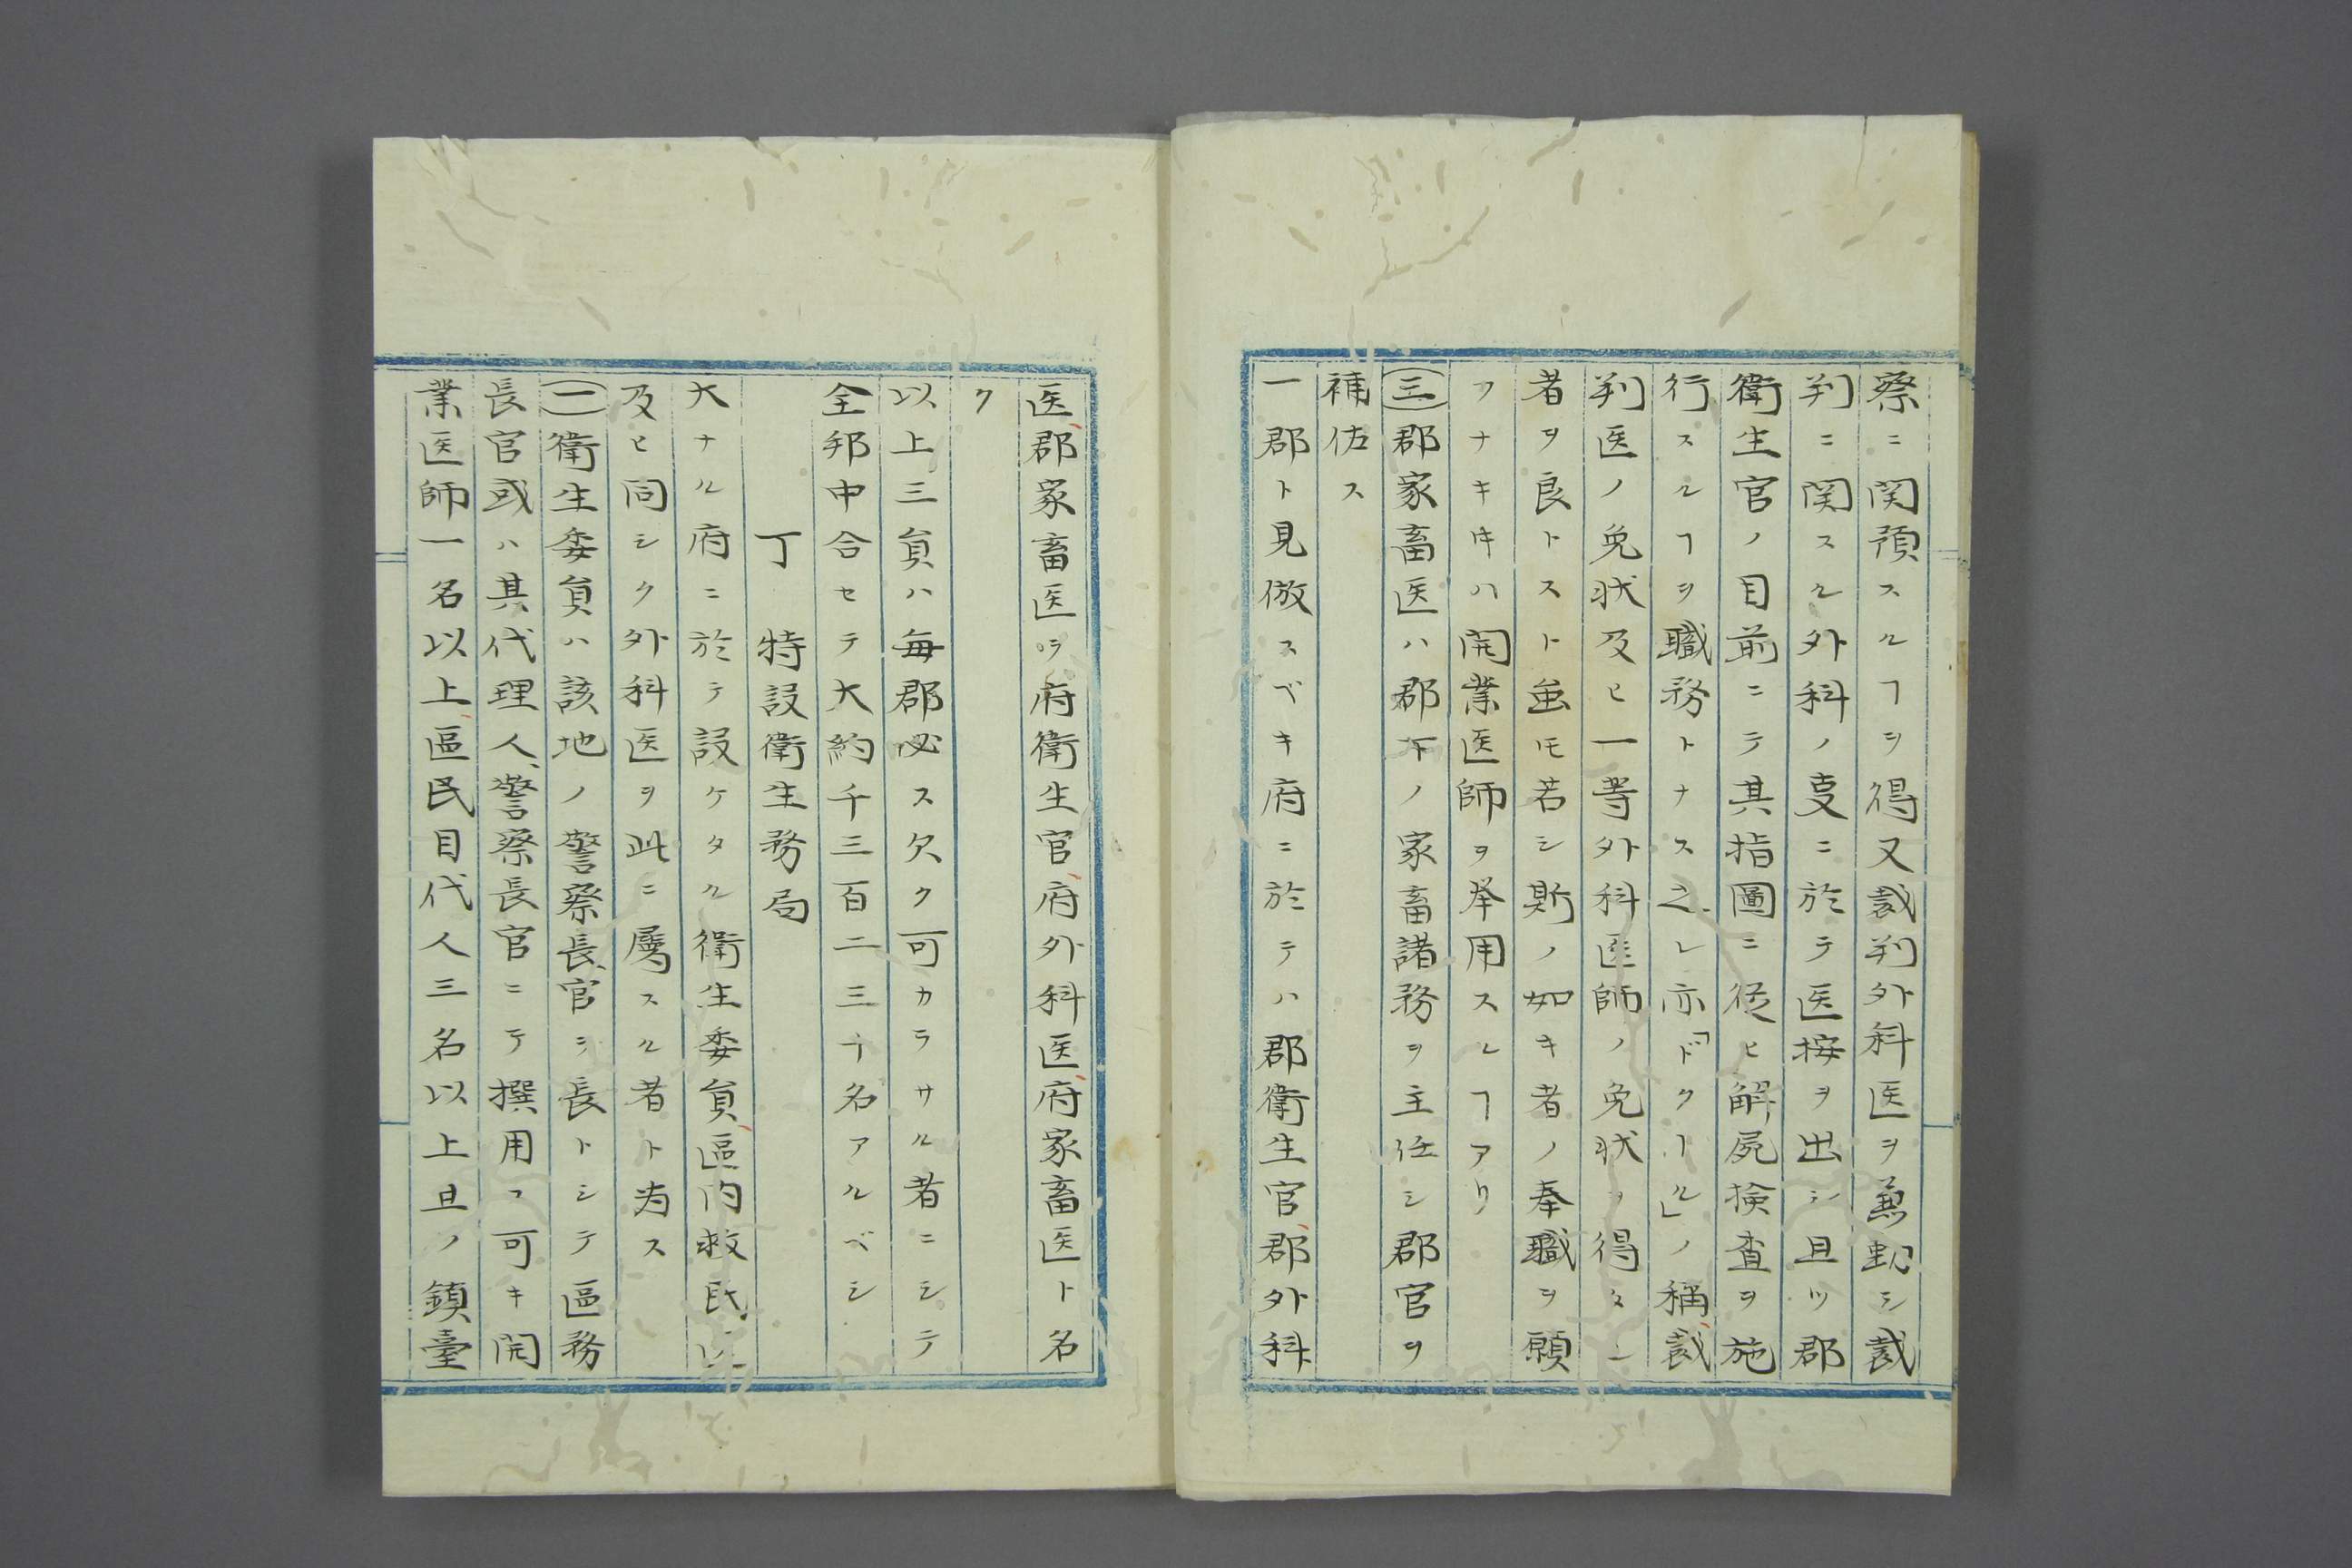 察ニ関預スルヿヲ得又裁判外科医ヲ兼勤シ裁
判ニ関スル外科ノ叓ニ於テ医按ヲ出シ且ツ郡
衛生官ノ目前ニテ其指圖ニ従ヒ解屍検査ヲ施
行スルヿヲ職務トナス之レ亦「ドクトル」ノ稱、裁
判医ノ免状及ヒ一等外科医師ノ免状ヲ得タル
者ヲ良トスト虽モ若シ斯ノ如キ者ノ奉職ヲ願
フナキ㕝ハ開業医師ヲ挙用スルヿアリ
(三)郡家畜医ハ郡下ノ家畜諸務ヲ主任シ郡官ヲ
補佐ス
一郡ト見倣スベキ府ニ於テハ郡衛生官、郡外科
医、郡家畜医ヲ府衛生官、府外科医、府家畜医ト名
ク
以上三貟ハ毎郡必ス欠ク可カラサル者ニシテ
全邦中合セテ大約千三百二三十名アルベシ
丁 特設衛生務局
大ナル府ニ於テ設ケタル衛生委貟、區内救民医
及ヒ同シク外科医ヲ此ニ属スル者ト為ス
(一)衛生委貟ハ該地ノ警察長官ヲ長トシテ區務
長官或ハ其代理人、警察長官ニテ撰用ス可キ開
業医師一名以上、區民目代人三名以上且ノ鎮臺